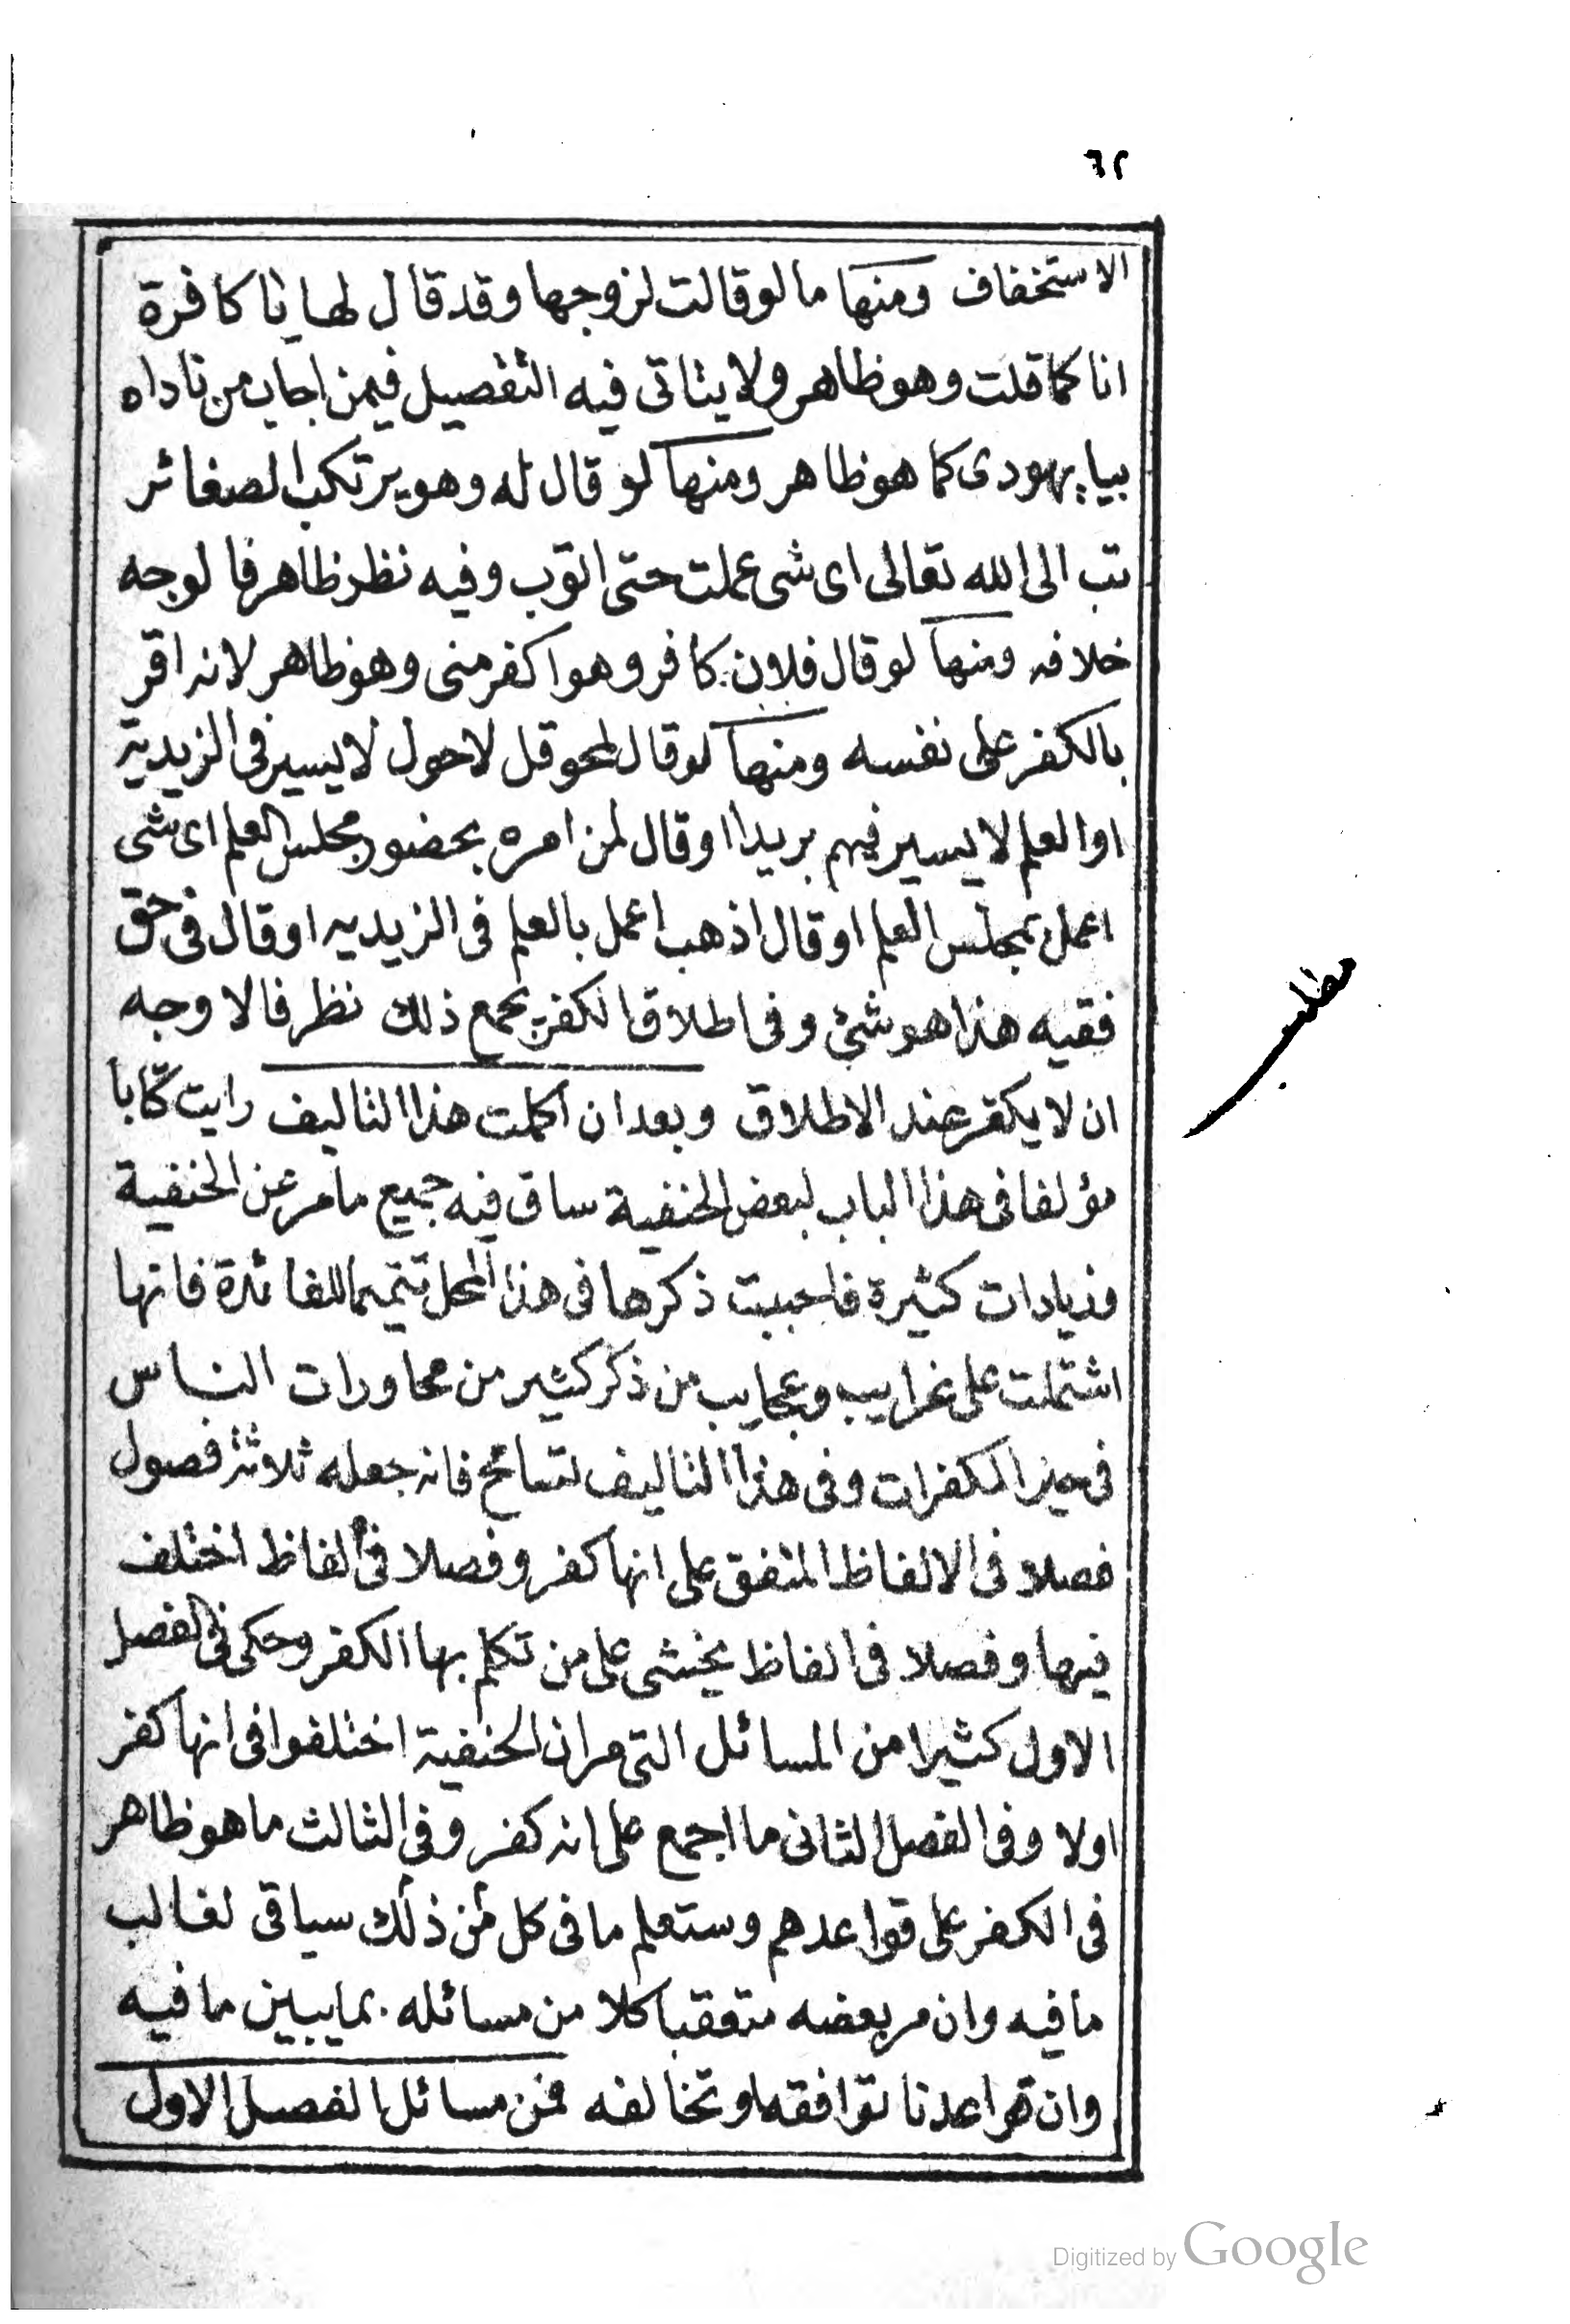 ٦٢
الاستخفاف ومنها ما لو قالت لزوجها وقد قال لها يا كافرة
انا كما قلت وهو ظاهر ولا يتاتى فيه التفصيل فيمن اجاب من ناداه
بيا يهودى كما هو ظاهر ومنها لو قال له وهو يرتكب الصغائر
تب الى الله تعالى اى شى عملت حتى اتوب وفيه نظر ظاهر فالوجه
خلافه ومنها لو قال فلان كافر وهو اكفر منى وهو ظاهر لانه اقر
بالكفر على نفسه ومنها لو قال لمحوقل لا حول لا ليسير فى الزيدية
او العلم لا يسير فيهم بريدا او قال لمن امره بحضور مجلس العلم اى شى
اعمل بمجلس العلم او قال اذهب اعمل بالعلم فى الزيديه او قال فى حق
فقيه هذا هو شئ وفى اطلاق الكفر بجمع ذلك نظر فالاوجه
مطلب
ان لا يكفر عند الاطلاق وبعد ان اكملت هذا التاليف رايت كتابا
مؤلفا فى هذا الباب لبعض الحنفية ساق فيه جميع ما مر عن الحنفية
وزيادات كثيرة فاحببت ذكرها فى هذا المحل تتميما للفائدة فانها
اشتملت على غرايب وعجايب من ذكر كثير من محاورات الناس
فى حيز المكفرات وفى هذا التاليف تسامح فانه جعله ثلاثة فصول
فصلا فى الالفاظ المتفق على انها كفر وفصلا فى الفاظ اختلف
فيها وفصلا فى الفاظ يخشى على من تكلم بها الكفر وحكى فى الفصل
الاول كثيرا من المسائل التى مر ان الحنفية اختلفوا فى انها كفر
اولا وفى الفصل الثانى ما اجمع على انه كفر وفى الثالث ما هو ظاهر
فى الكفر على قواعدهم وستعلم ما فى كل من ذلك سياقى لغالب
ما فيه وان مر بعضه متعقبا كلا من مسائله بما يبين ما فيه
وان قواعدنا توافقه او تخالفه فمن مسائل الفصل الاول
Digitized by Google